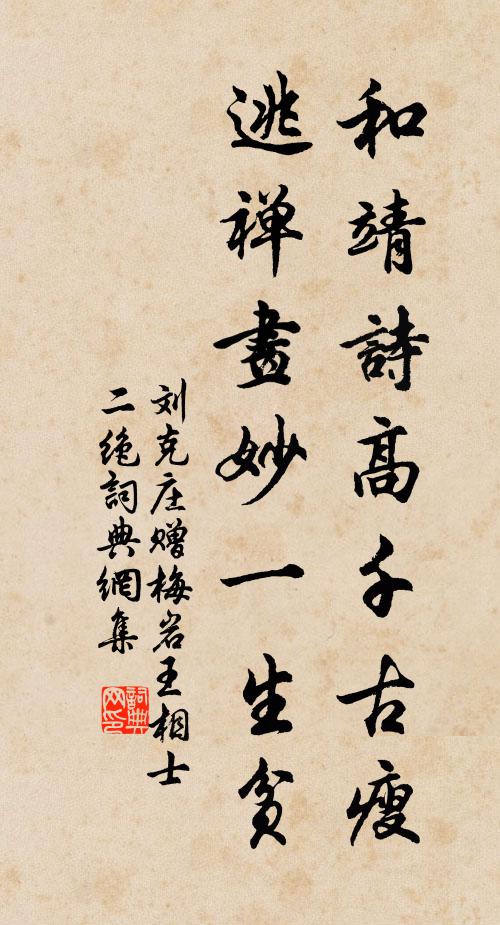 和靖詩高千古瘦
逃禅畫妙一生貧
刘克庄赠梅岩王相士
二绝詞典網集
詞典网印